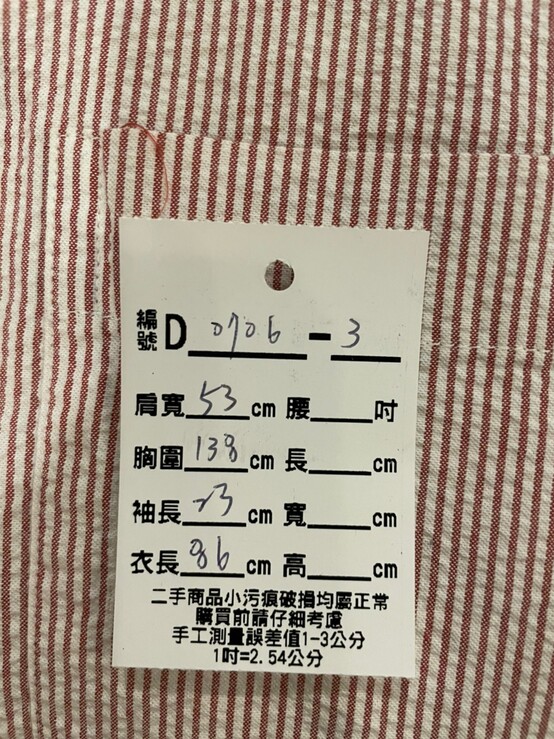 編號D 0706-3
肩寬53cm 腰____吋
胸圍138cm 長____cm
袖長23cm 寬____cm
衣長86cm 高____cm
二手商品小污痕破損均屬正常
購買前請仔細考慮
手工測量誤差值1-3公分
1吋=2.54公分